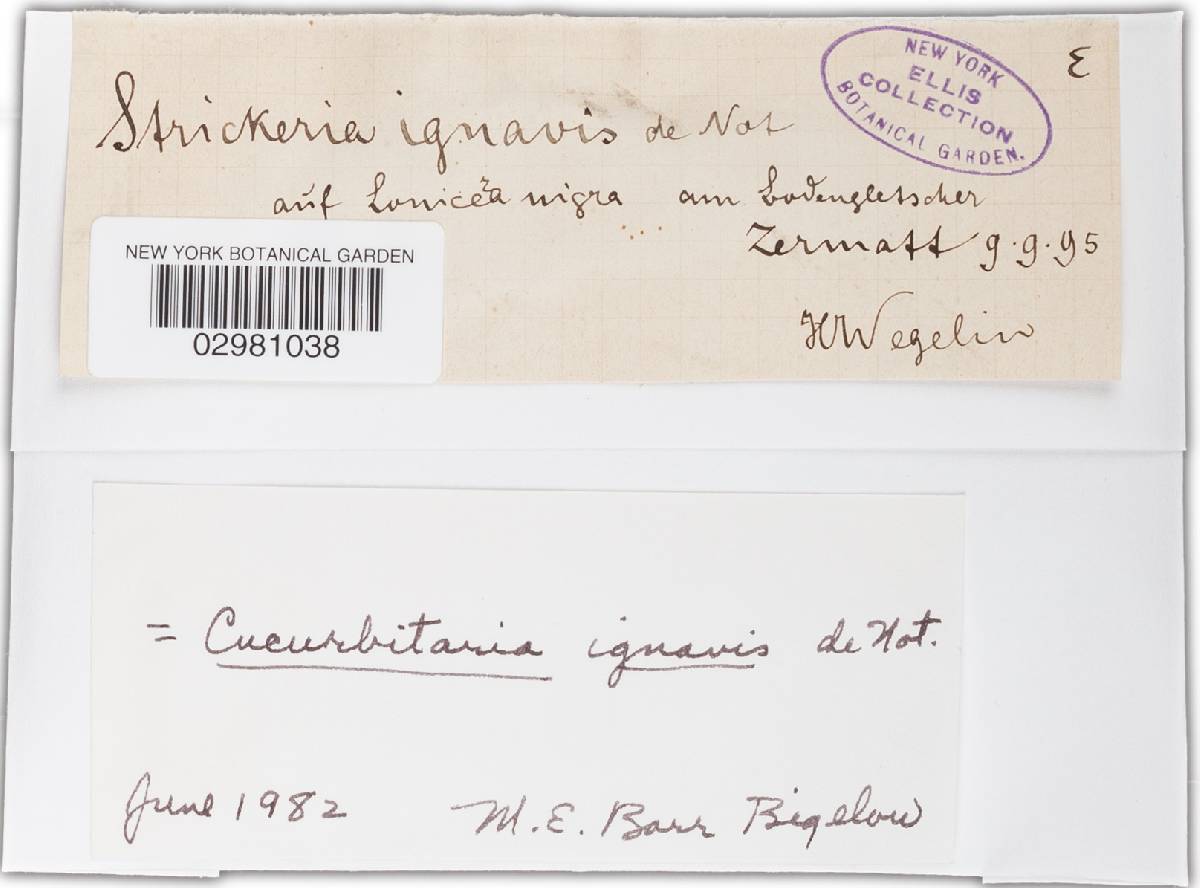 Strickeria ignavis de Not
NEW YORK
ELLIS
COLLECTION
BOTANICAL GARDEN.
ε
auf Lonicera nigra am Bodengletscher
Zermatt 9.9.95
HWegelin
NEW YORK BOTANICAL GARDEN
02981038
= Cucurbitaria ignavis de Not.
June 1982 M.E. Barr Bigelow